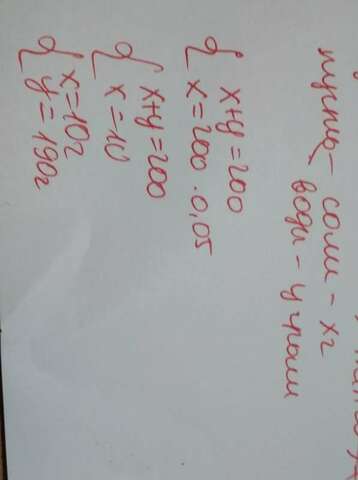 пусть - соли - x г
воды - y грамм
x+y=200
x=200·0,05
x+y=200
x=10
x=10г
y=190г